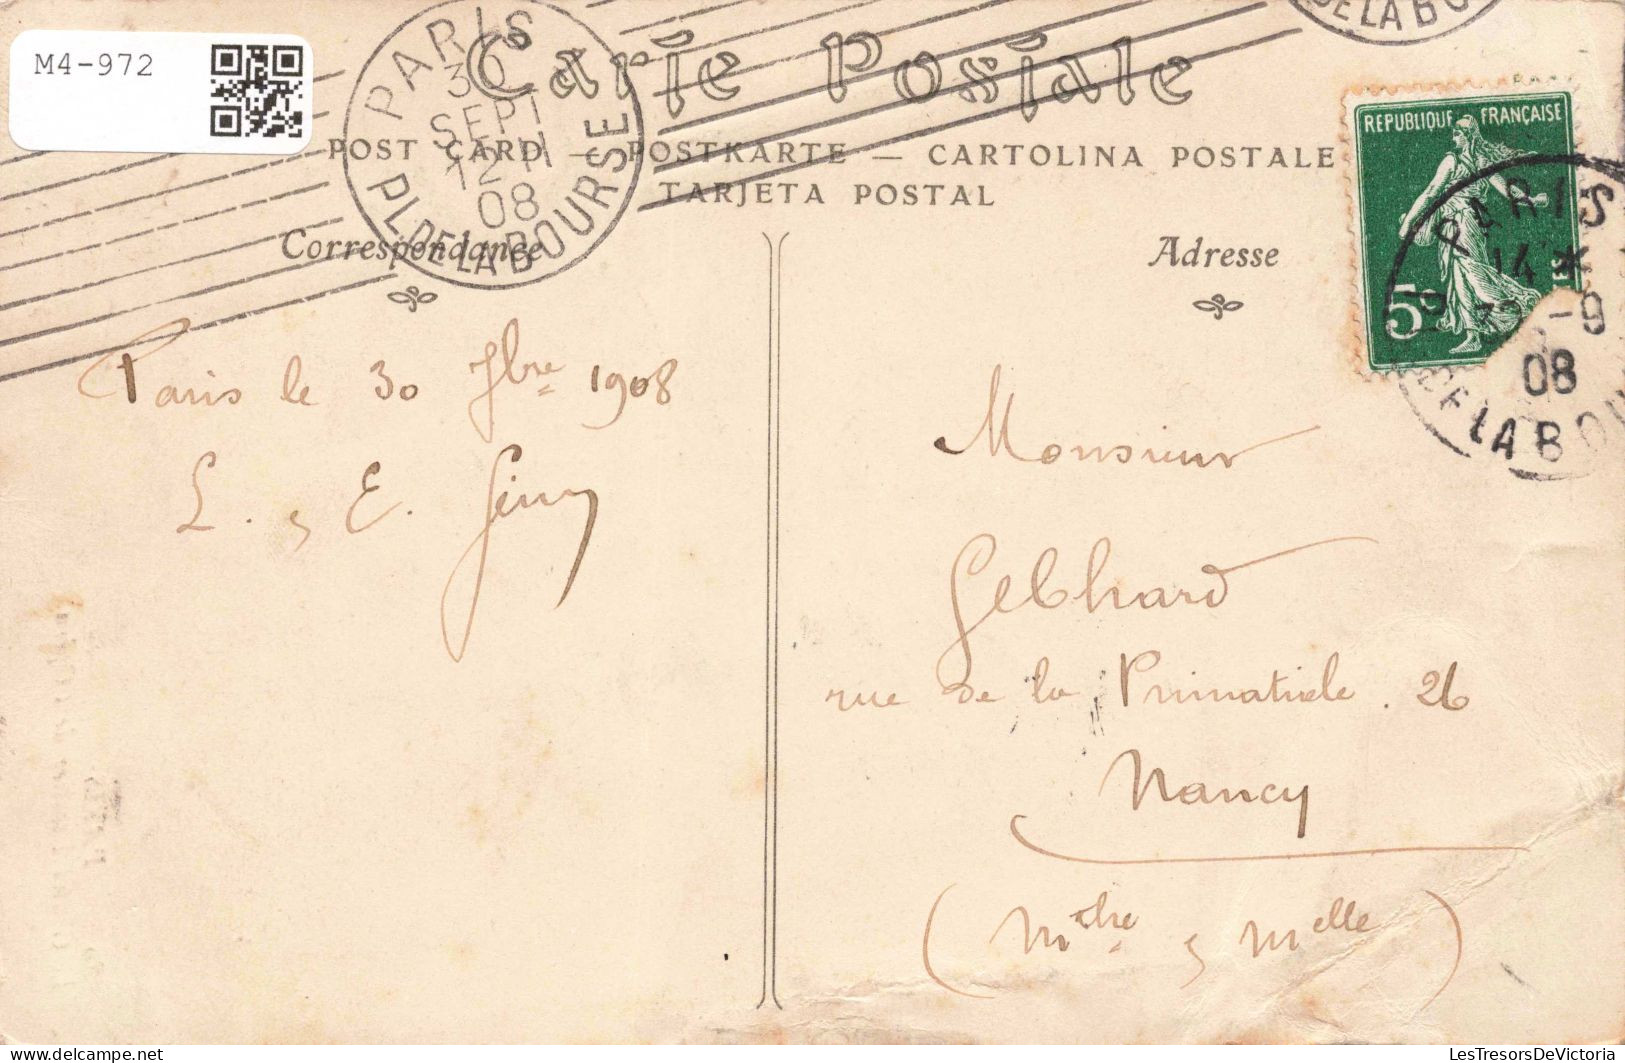 M4-972
PARIS
30
SEPT
12-H
08
PL. DE LA BOURSE
DE LA BO
Carte Postale
POST CARD — POSTKARTE — CARTOLINA POSTALE
TARJETA POSTAL
Correspondance
Adresse
REPUBLIQUE FRANÇAISE
5c
PARIS
14 *
30-9
08
DE LA BOU
Paris le 30 7bre 1908
L. & E.
Monsieur
Gebhard
rue de la Primatiale. 26
Nancy
(Melle)
LesTresorsDeVictoria
delcampe.net